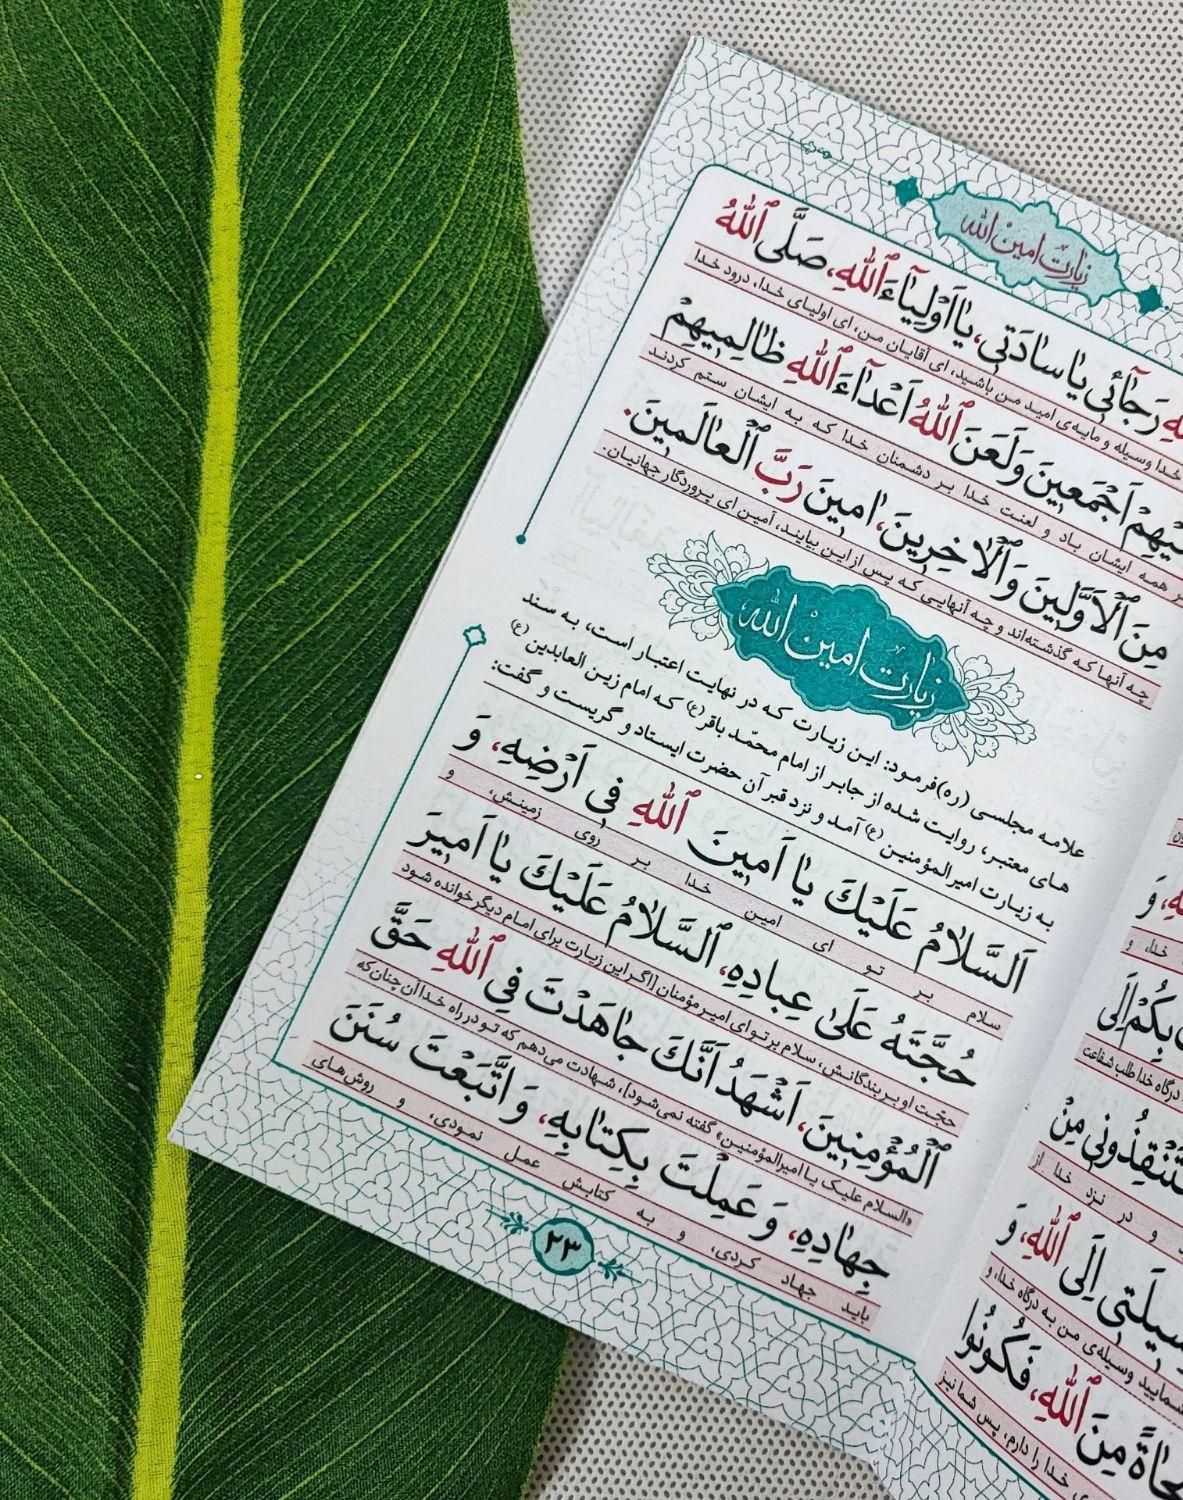 زیارت امین الله
رَجٰٓائی یٰا سٰادَتی، یٰا اَوْلِیٰٓاءَ ٱللّٰهِ، صَلَّی ٱللّٰهُ
خدا وسیله و مایه‌ی امید من باشید، ای آقایان من، ای اولیای خدا، درود خدا
اَجْمَعینَ وَ لَعَنَ ٱللّٰهُ اَعْدٰٓاءَ ٱللّٰهِ ظٰالِمیهِمْ
همه ایشان باد و لعنت خدا بر دشمنان خدا که به ایشان ستم کردند
مِنَ ٱلْاَوَّلینَ وَ ٱلْاٰخِرینَ، اٰمینَ رَبَّ ٱلْعٰالَمینَ.
چه آنها که گذشته‌اند و چه آنهایی که پس از این بیایند، آمین ای پروردگار جهانیان.
زیارت امین الله
علامه مجلسی (ره) فرمود: این زیارت که در نهایت اعتبار است، به سند
های معتبر، روایت شده از جابر از امام محمّد باقر (ع) که امام زین العابدین (ع)
به زیارت امیرالمؤمنین (ع) آمد و نزد قبر آن حضرت ایستاد و گریست و گفت:
اَلسَّلٰامُ عَلَیْكَ یٰا اَمینَ ٱللّٰهِ فی اَرْضِهِ، وَ
سلام بر تو ای امین خدا بر روی زمینش، و
حُجَّتَهُ عَلیٰ عِبٰادِهِ، اَلسَّلٰامُ عَلَیْكَ یٰا اَمیرَ
حجّت او بر بندگانش، سلام بر تو ای امیر مؤمنان [اگر این زیارت برای امام دیگر خوانده شود
ٱلْمُؤْمِنینَ، اَشْهَدُ اَنَّكَ جٰاهَدْتَ فِی ٱللّٰهِ حَقَّ
«السلام علیک یا امیرالمؤمنین» گفته نمی‌شود]، شهادت می‌دهم که تو در راه خدا آن چنان که
جِهٰادِهِ، وَ عَمِلْتَ بِکِتٰابِهِ، وَ اتَّبَعْتَ سُنَنَ
باید جهاد کردی، و به کتابش عمل نمودی، و روش‌های
۲۳
بِکُمْ اِلَی
درگاه خدا طلب شفاعت
مِنْ
و در نزد خدا از
اِلَی ٱللّٰهِ، وَ
وسیله‌ی من به درگاه خدا، و
مِنَ ٱللّٰهِ، فَکُونُوا
خدا را دارم، پس شما نیز